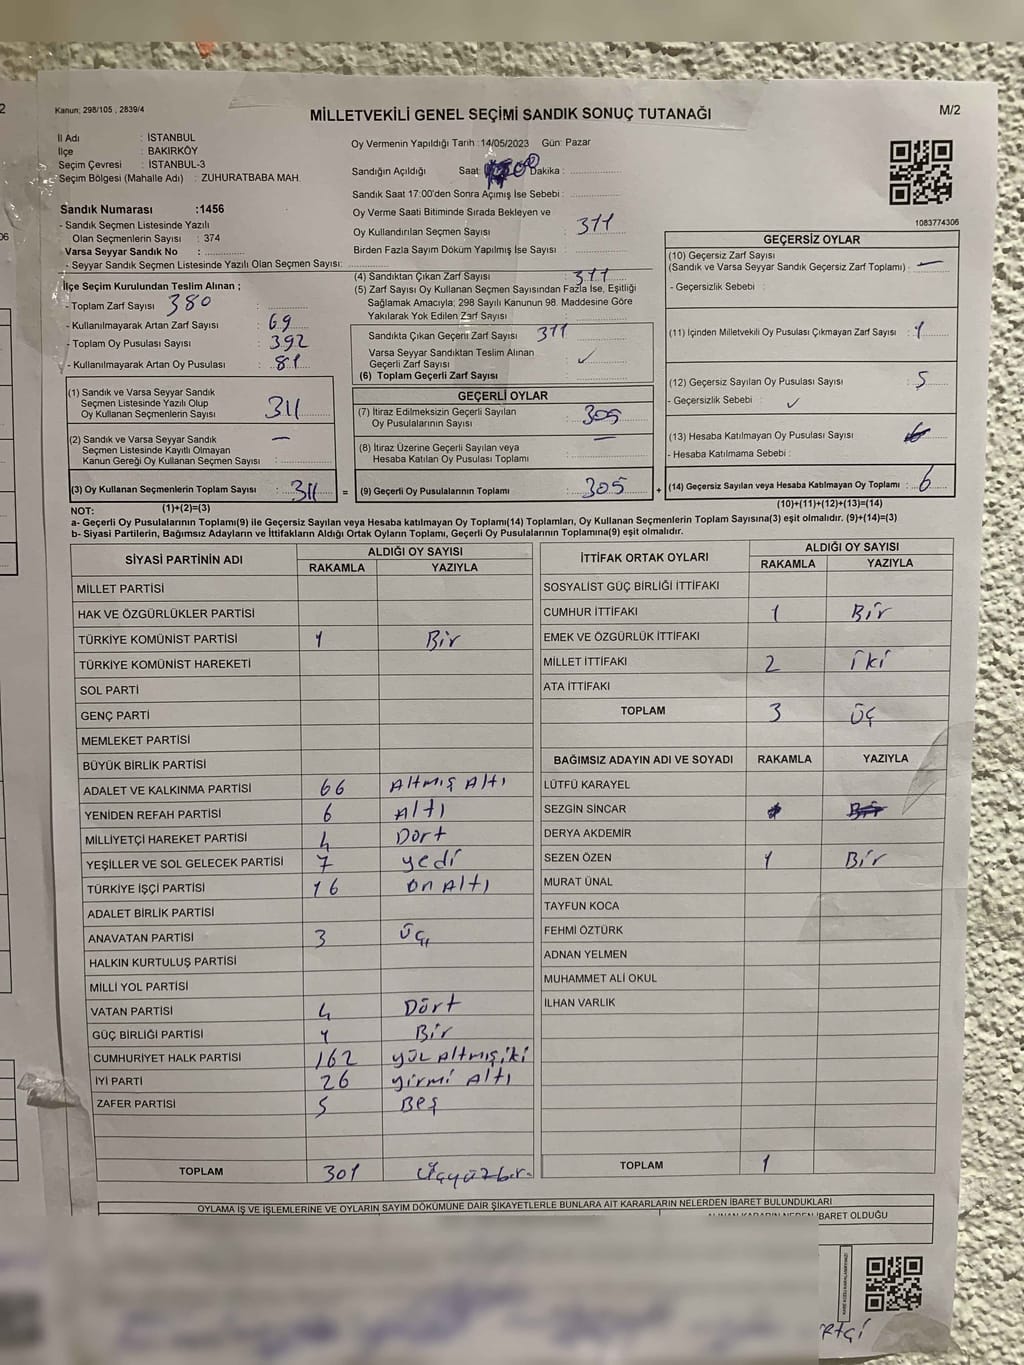 Kanun; 298/105 , 2839/4
MİLLETVEKİLİ GENEL SEÇİMİ SANDIK SONUÇ TUTANAĞI
M/2
İl Adı : İSTANBUL
İlçe : BAKIRKÖY
Seçim Çevresi : İSTANBUL-3
Seçim Bölgesi (Mahalle Adı) : ZUHURATBABA MAH.
Sandık Numarası :1456
- Sandık Seçmen Listesinde Yazılı
Olan Seçmenlerin Sayısı : 374
Varsa Seyyar Sandık No :
- Seyyar Sandık Seçmen Listesinde Yazılı Olan Seçmen Sayısı:
İlçe Seçim Kurulundan Teslim Alınan ;
- Toplam Zarf Sayısı 380
- Kullanılmayarak Artan Zarf Sayısı : 69
- Toplam Oy Pusulası Sayısı : 392
- Kullanılmayarak Artan Oy Pusulası : 81
(1) Sandık ve Varsa Seyyar Sandık
Seçmen Listesinde Yazılı Olup
Oy Kullanan Seçmenlerin Sayısı : 311
(2) Sandık ve Varsa Seyyar Sandık
Seçmen Listesinde Kayıtlı Olmayan
Kanun Gereği Oy Kullanan Seçmen Sayısı : —
(3) Oy Kullanan Seçmenlerin Toplam Sayısı : 311
(1)+(2)=(3)
Oy Vermenin Yapıldığı Tarih : 14/05/2023 Gün: Pazar
Sandığın Açıldığı Saat Dakika :
Sandık Saat 17:00'den Sonra Açımış İse Sebebi :
Oy Verme Saati Bitiminde Sırada Bekleyen ve
Oy Kullandırılan Seçmen Sayısı : 311
Birden Fazla Sayım Döküm Yapılmış İse Sayısı :
(4) Sandıktan Çıkan Zarf Sayısı : 311
(5) Zarf Sayısı Oy Kullanan Seçmen Sayısından Fazla İse, Eşitliği
Sağlamak Amacıyla; 298 Sayılı Kanunun 98. Maddesine Göre
Yakılarak Yok Edilen Zarf Sayısı :
Sandıkta Çıkan Geçerli Zarf Sayısı 311
Varsa Seyyar Sandıktan Teslim Alınan
Geçerli Zarf Sayısı : ✓
(6) Toplam Geçerli Zarf Sayısı :
GEÇERLİ OYLAR
(7) İtiraz Edilmeksizin Geçerli Sayılan
Oy Pusulalarının Sayısı : 305
(8) İtiraz Üzerine Geçerli Sayılan veya
Hesaba Katılan Oy Pusulası Toplamı : —
= (9) Geçerli Oy Pusulalarının Toplamı : 305 +
1083774306
GEÇERSİZ OYLAR
(10) Geçersiz Zarf Sayısı
(Sandık ve Varsa Seyyar Sandık Geçersiz Zarf Toplamı) : —
- Geçersizlik Sebebi :
(11) İçinden Milletvekili Oy Pusulası Çıkmayan Zarf Sayısı : 1
(12) Geçersiz Sayılan Oy Pusulası Sayısı : 5
- Geçersizlik Sebebi : ✓
(13) Hesaba Katılmayan Oy Pusulası Sayısı :
- Hesaba Katılmama Sebebi :
(14) Geçersiz Sayılan veya Hesaba Katılmayan Oy Toplamı : 6
(10)+(11)+(12)+(13)=(14)
NOT:
a- Geçerli Oy Pusulalarının Toplamı(9) ile Geçersiz Sayılan veya Hesaba katılmayan Oy Toplamı(14) Toplamları, Oy Kullanan Seçmenlerin Toplam Sayısına(3) eşit olmalıdır. (9)+(14)=(3)
b- Siyasi Partilerin, Bağımsız Adayların ve İttifakların Aldığı Ortak Oyların Toplamı, Geçerli Oy Pusulalarının Toplamına(9) eşit olmalıdır.
SİYASİ PARTİNİN ADI ALDIĞI OY SAYISI
RAKAMLA YAZIYLA
MİLLET PARTİSİ
HAK VE ÖZGÜRLÜKLER PARTİSİ
TÜRKİYE KOMÜNİST PARTİSİ 1 Bir
TÜRKİYE KOMÜNİST HAREKETİ
SOL PARTİ
GENÇ PARTİ
MEMLEKET PARTİSİ
BÜYÜK BİRLİK PARTİSİ
ADALET VE KALKINMA PARTİSİ 66 Altmış Altı
YENİDEN REFAH PARTİSİ 6 Altı
MİLLİYETÇİ HAREKET PARTİSİ 4 Dört
YEŞİLLER VE SOL GELECEK PARTİSİ 7 yedi
TÜRKİYE İŞÇİ PARTİSİ 16 on Altı
ADALET BİRLİK PARTİSİ
ANAVATAN PARTİSİ 3 üç
HALKIN KURTULUŞ PARTİSİ
MİLLİ YOL PARTİSİ
VATAN PARTİSİ 4 Dört
GÜÇ BİRLİĞİ PARTİSİ 1 Bir
CUMHURİYET HALK PARTİSİ 162 yüz Altmış iki
İYİ PARTİ 26 yirmi Altı
ZAFER PARTİSİ 5 Beş
TOPLAM 301 Üçyüzbir
İTTİFAK ORTAK OYLARI ALDIĞI OY SAYISI
RAKAMLA YAZIYLA
SOSYALİST GÜÇ BİRLİĞİ İTTİFAKI
CUMHUR İTTİFAKI 1 Bir
EMEK VE ÖZGÜRLÜK İTTİFAKI
MİLLET İTTİFAKI 2 iki
ATA İTTİFAKI
TOPLAM 3 üç
BAĞIMSIZ ADAYIN ADI VE SOYADI RAKAMLA YAZIYLA
LÜTFÜ KARAYEL
SEZGİN SİNCAR
DERYA AKDEMİR
SEZEN ÖZEN 1 Bir
MURAT ÜNAL
TAYFUN KOCA
FEHMİ ÖZTÜRK
ADNAN YELMEN
MUHAMMET ALİ OKUL
İLHAN VARLIK
TOPLAM 1
OYLAMA İŞ VE İŞLEMLERİNE VE OYLARIN SAYIM DÖKÜMÜNE DAİR ŞİKAYETLERLE BUNLARA AİT KARARLARIN NELERDEN İBARET BULUNDUKLARI
İBARET OLDUĞU